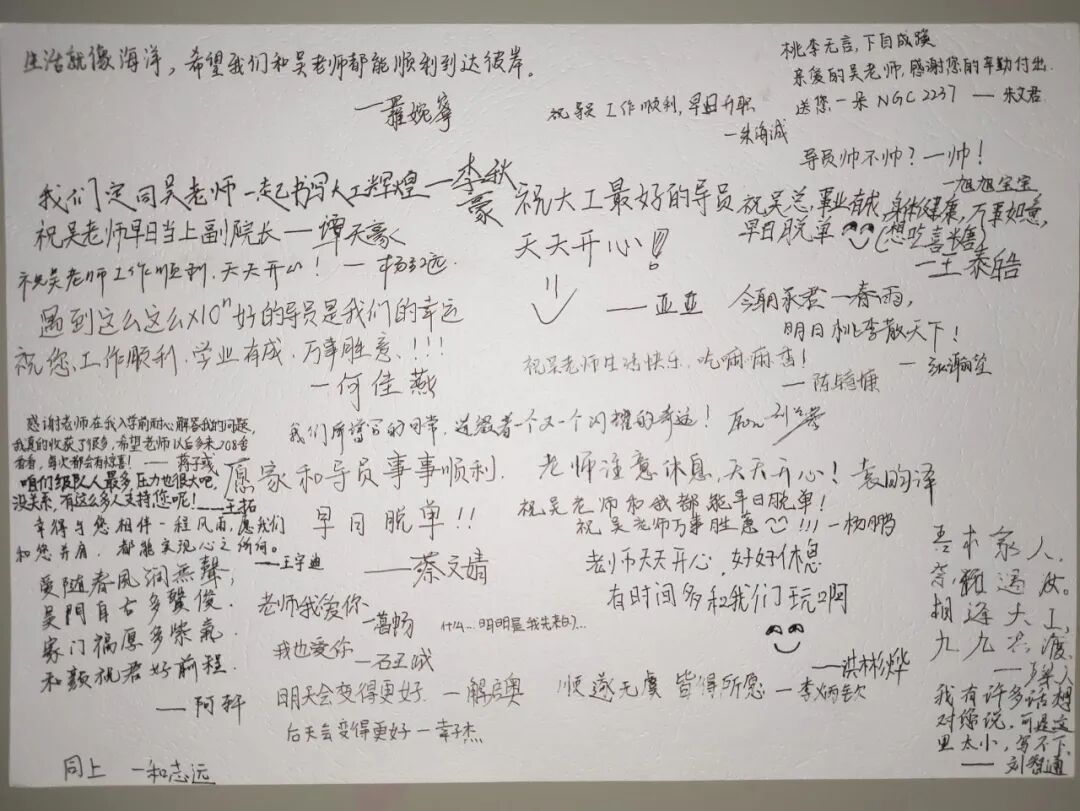 生活就像海洋，希望我们和吴老师都能顺利到达彼岸。
—羅婉寧
桃李无言，下自成蹊
亲爱的吴老师，感谢您的辛勤付出
送您一朵 NGC 2237 —— 朱文君
祝导员工作顺利，早日升职
—朱海诚
导员帅不帅？一帅！
—旭旭宝宝
我们定同吴老师一起书写大工辉煌—李秋豪
祝吴老师早日当上副院长—谭天豪
祝吴老师工作顺利，天天开心！ —杨远
祝大工最好的导员
天天开心！
——亚亚
祝吴总，事业有成，身体健康，万事如意，
早日脱单（想吃喜糖）
—王泰皓
遇到这么这么×10ⁿ好的导员是我们的幸运
祝您、工作顺利、学业有成、万事胜意、！！！
—何佳燕
今朝承君一春雨，
明日桃李散天下！
祝吴老师生活快乐，吃嘛嘛香！
感谢老师在我入学前耐心解答我的问题，
我真的收获了很多，希望老师以后多来208舍
看看，每次都会有惊喜！ ——蒋子彧
咱们级队人最多压力也很大吧，
没关系，有这么多人支持您呢！——王拓
我们所谱写的日常，连缀着一个又一个闪耀的奇迹！
愿家和导员事事顺利，
早日脱单！！
——蔡文婧
老师注意休息，天天开心！袁昀泽
祝吴老师和我都能早日脱单！
祝吴老师万事胜意 !!! —杨鹏
幸得与您相伴一程风雨，愿我们
和您并肩，都能实现心之所向。
—王宇迪
老师天天开心，好好休息
有时间多和我们玩啊
——洪彬烨
爱随春风润無聲，
吴門自古多賢俊．
家门福愿多紫氣
和颜祝君好前程
——阿轩
老师我爱你
—葛畅
(什么...明明是我先来的)...
我也爱你
—石丑斌
明天会变得更好 —解奥
后天会变得更好—幸子杰
顺遂无虞 皆得所愿 —李炳钦
吾本家人，
奈难遇汝。
相逢大工，
九九共渡
我有许多话想
对您说，可是这
里太小，写不下．
—— 刘智通
同上 —和志远